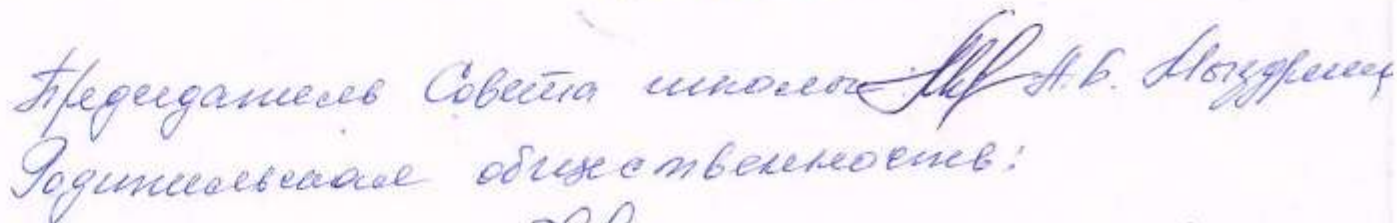 Председатель Совета школы А.Б. Мыздрин
Родительская общественность: